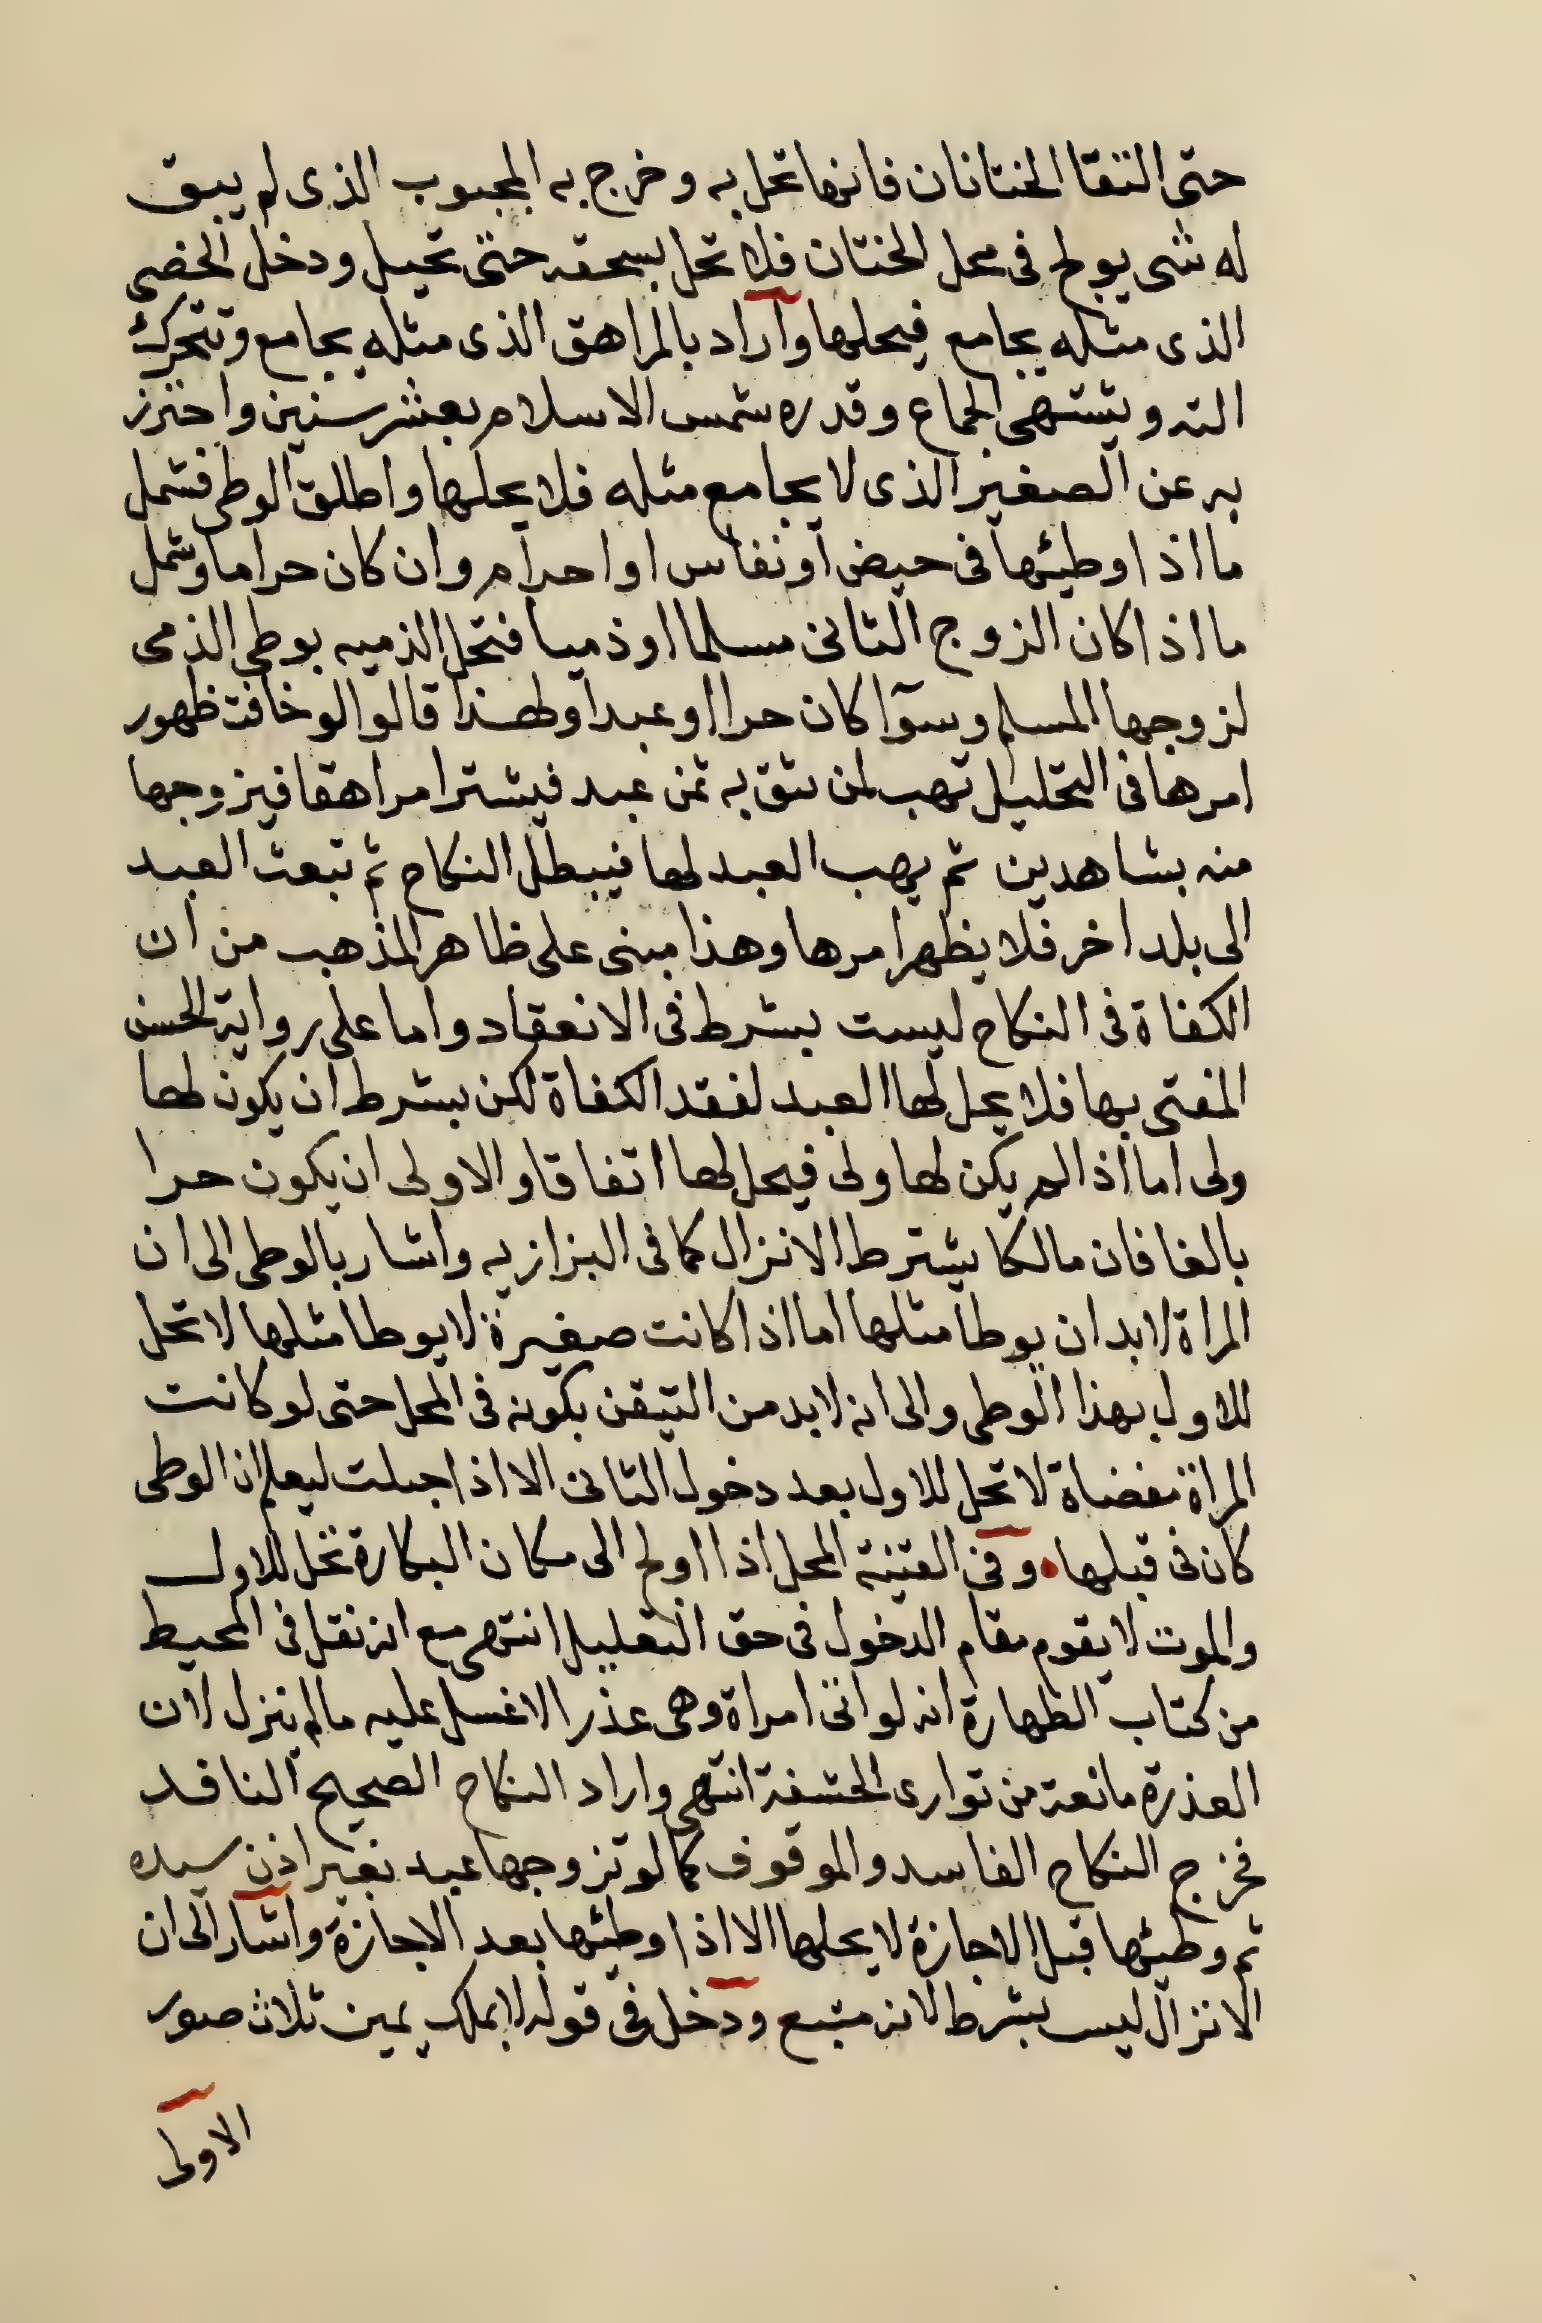 حتى التقا الختانان فانها تحل به وخرج به المجبوب الذى لم يبق
له شى يولج فى محل الختان فلا تحل بسحقه حتى تحبل ودخل الخصى
الذى مثله يجامع فيحلها واراد بالمراهق الذى مثله يجامع وتتحرك
الته ويشتهى الجماع وقدره شمس الاسلام بعشر سنين واحترز
به عن الصغير الذى لا يجامع مثله فلا يحلها واطلق الوطى فشمل
ما اذا وطيئها فى حيض او نفاس او احرام وان كان حراما وشمل
ما اذا كان الزوج الثانى مسلما او ذميا فتحل الذميه بوطى الذمى
لزوجها المسلم وسوآ كان حرا او عبدا ولهذا قالوا لو خافت ظهور
امرها فى التحليل تهب لمن تثق به ثمن عبد فيشترا مراهقا فيزوجها
منه بشاهدين ثم يهب العبد لها فيبطل النكاح ثم تبعث العبد
الى بلد اخر فلا يظهر امرها وهذا مبنى على ظاهر المذهب من ان
الكفاة فى النكاح ليست بشرط فى الانعقاد واما على رواية الحسن
المفتى بها فلا يحل لها العبد لفقد الكفاة لكن بشرط ان يكون لها
ولى اما اذا لم يكن لها ولى فيحل لها اتفاقا والاولى ان يكون حرا
بالغا فان مالكا يشترط الانزال كما فى البزازيه واشار بالوطى الى ان
المراة لابد ان يوطا مثلها اما اذا كانت صغيرة لا يوطا مثلها لا تحل
للاول بهذا الوطى والى انه لابد من التيقن بكونه فى المحل حتى لو كانت
المراة مفضاة لا تحل للاول بعد دخول الثانى الا اذا حبلت ليعلم ان الوطى
كان فى قبلها وفى القنية المحل اذا اولج الى مكان البكارة تحل للاول
والموت لا يقوم مقام الدخول فى حق التحليل انتهى مع انه نقل فى المحيط
من كتاب الطهارة انه لو اتى امراة وهى عذرا لا غسل عليه مالم ينزل لان
العذرة مانعة من توارى الحشفة انتهى واراد النكاح الصحيح النافد
فخرج النكاح الفاسد والموقوف كما لو تزوجها عبد بغير اذن سيده
ثم وطيئها قبل الاجازة لا يحلها الا اذا وطيئها بعد الاجازة واشار الى ان
الانزال ليس بشرط لانه مشبع ودخل فى قوله لا بملك يمين ثلاث صور
الاولى